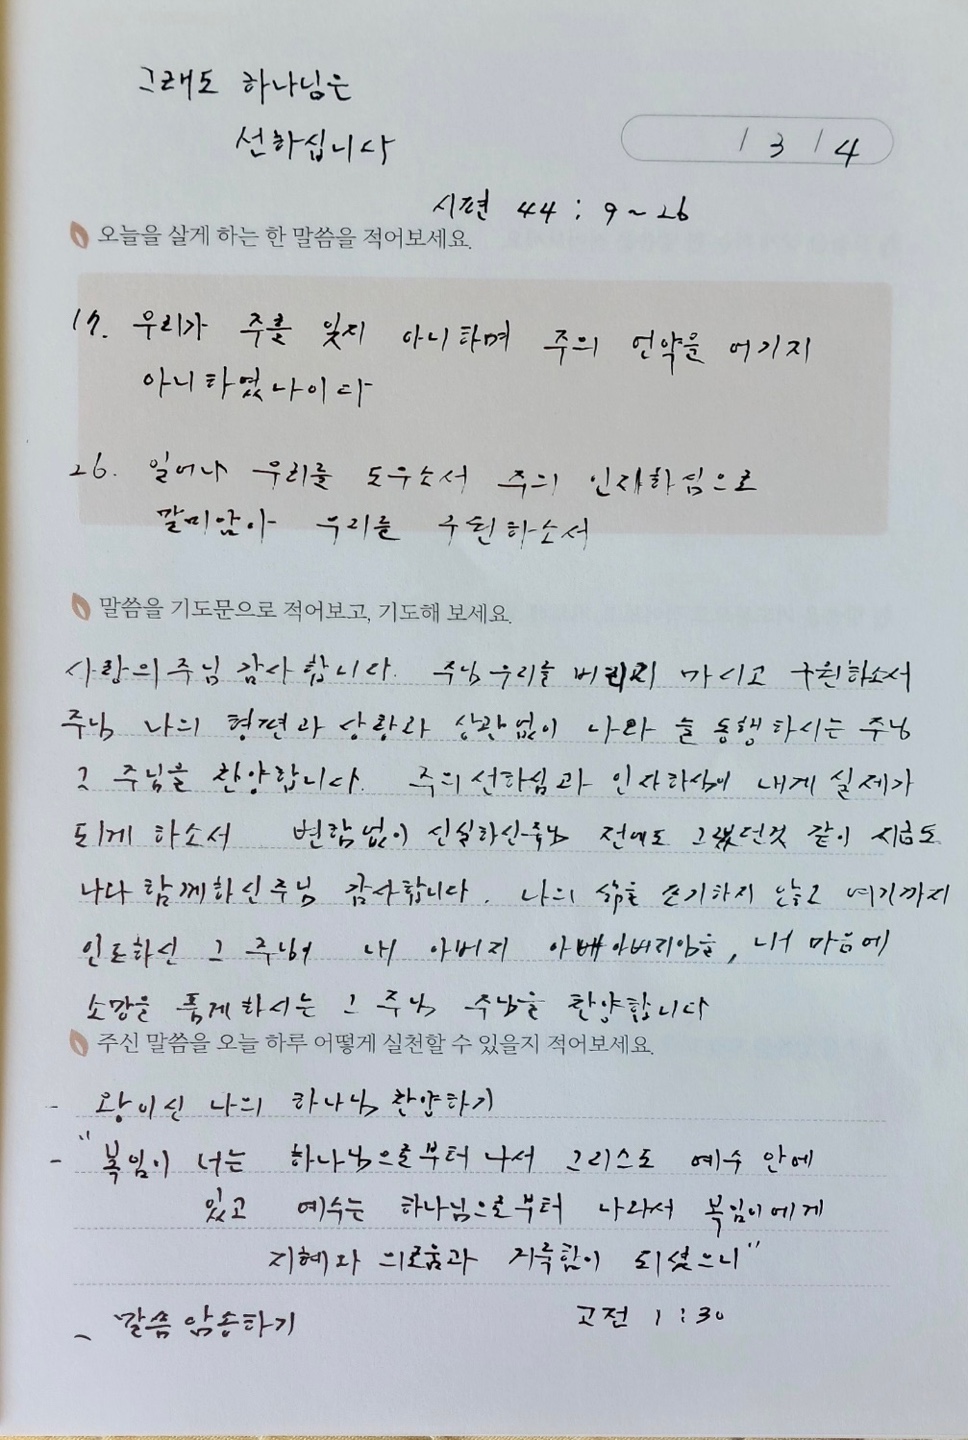 그래도 하나님은
선하십니다
/ 3 / 4
시편 44 : 9 ~ 26
오늘을 살게 하는 한 말씀을 적어보세요.
17. 우리가 주를 잊지 아니하며 주의 언약을 어기지
아니하였나이다
26. 일어나 우리를 도우소서 주의 인자하심으로
말미암아 우리를 구원하소서
말씀을 기도문으로 적어보고, 기도해 보세요.
사랑의 주님 감사합니다. 주님 우리를 버리지 마시고 구원하소서
주님 나의 형편과 상황과 상관없이 나와 늘 동행하시는 주님
그 주님을 찬양합니다. 주의 선하심과 인자하심이 내게 실제가
되게 하소서 변함없이 신실하신 주님 전에도 그랬던것 같이 지금도
나와 함께하신 주님 감사합니다. 나의 삶을 포기하지 않고 여기까지
인도하신 그 주님이 내 아버지 아빠아버지임을, 내 마음에
소망을 품게하시는 그 주님 주님을 찬양합니다
주신 말씀을 오늘 하루 어떻게 실천할 수 있을지 적어보세요.
- 왕이신 나의 하나님 찬양하기
- "복임이 너는 하나님으로부터 나서 그리스도 예수 안에
있고 예수는 하나님으로부터 나와서 복임이에게
지혜와 의로움과 거룩함이 되셨으니"
- 말씀 암송하기 고전 1 : 30